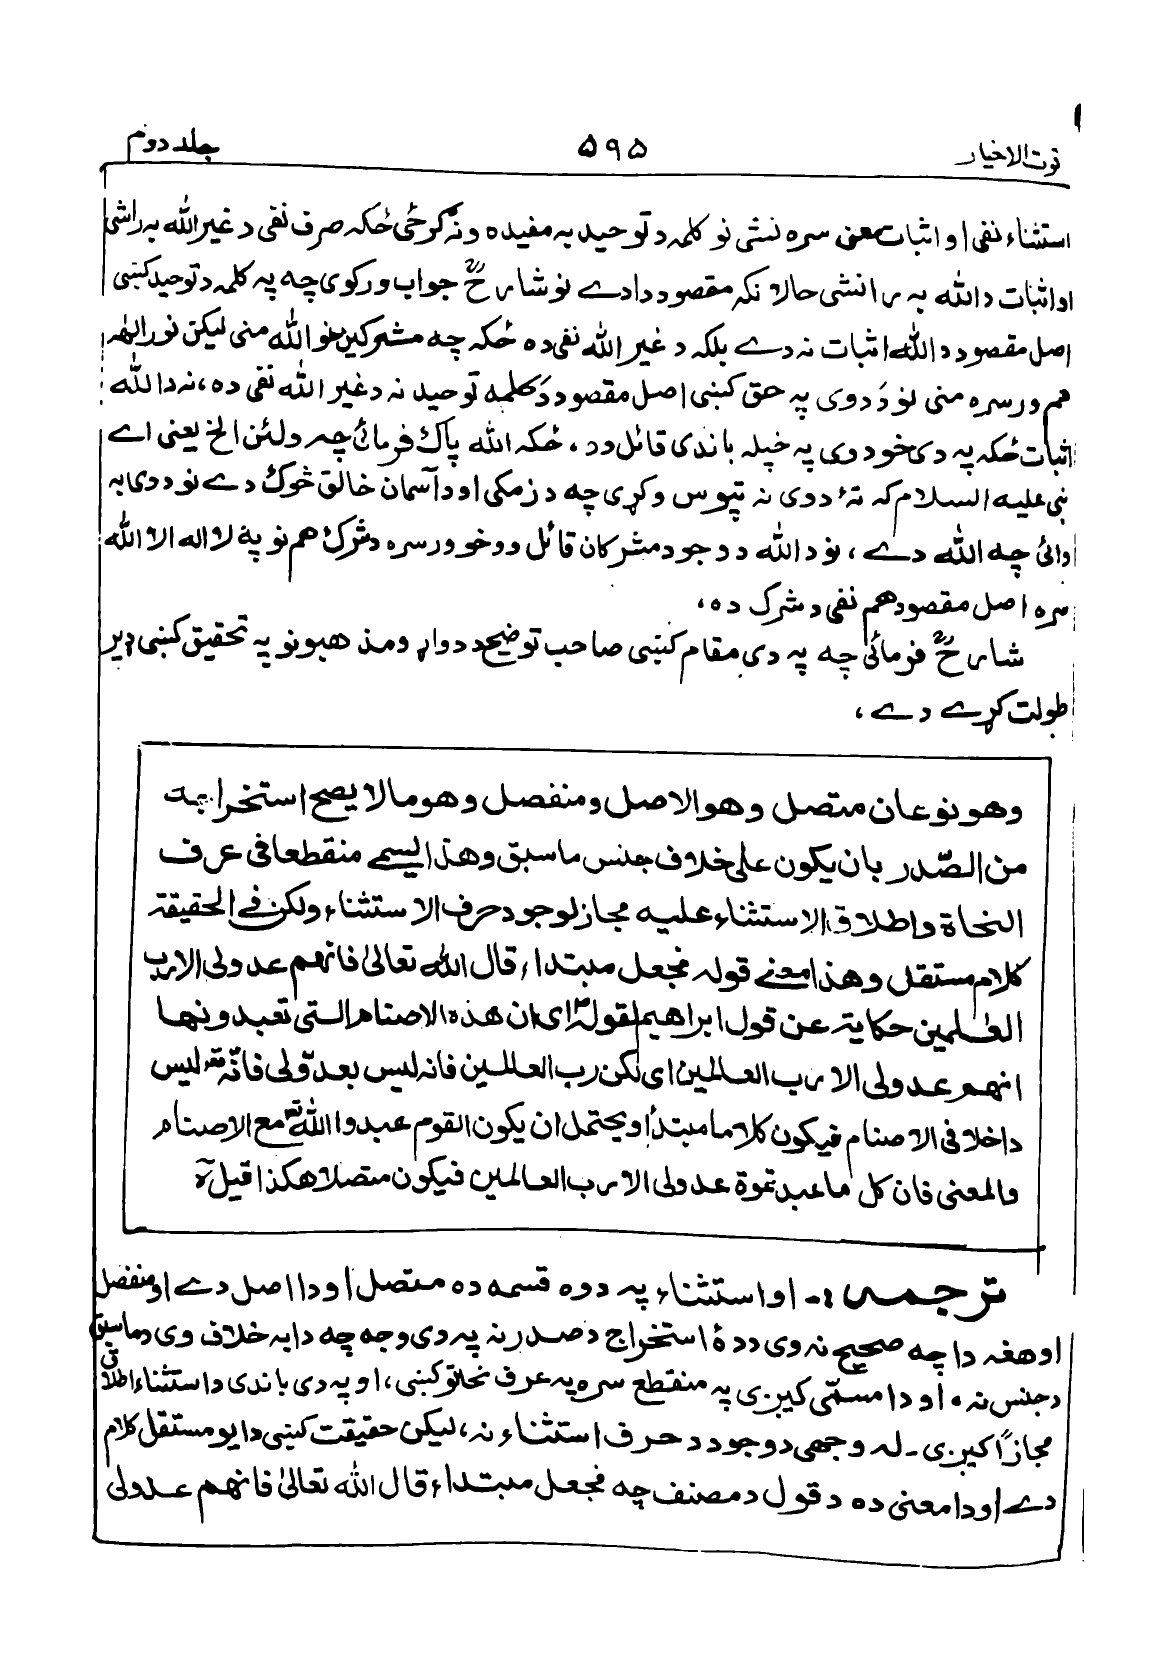 قوت الاخیار ۵۹۵ جلد دوم
استثناء نفی او اثبات معنی سره نشی نو کلمه د توحید به مفیده ونه گرځی ځکه صرف نفی د غیر الله به راشی
او اثبات د الله به رانشی حالانکه مقصود دا دے نو شارحؒ جواب ورکوی چه په کلمه د توحید کښی
اصل مقصود د الله اثبات نه دے بلکه د غیر الله نفی ده ځکه چه مشرکین خو الله منی لیکن نور الٰهه
هم ورسره منی نو د دوی په حق کښی اصل مقصود د کلمه توحید نه د غیر الله نفی ده، نه د الله
اثبات ځکه په دی خو دوی په خپله باندی قائل وو، ځکه الله پاک فرمائی چه ولئن الخ یعنی اے
نبی علیه السلام که تهٔ دوی نه تپوس وکړی چه د زمکی او د آسمان خالق څوک دے نو دوی به
اوائی چه الله دے، نو د الله د وجود مشرکان قائل وو خو ورسره د شرک هم نو په لا اله الا الله
سره اصل مقصود هم نفی د شرک ده،
شارحؒ فرمائی چه په دی مقام کښی صاحب توضیح د دواړو مذهبونو په تحقیق کښی ډیر
طولت کړے دے،
وهو نوعان متصل وهو الاصل ومنفصل وهو مالا یصح استخراجه
من الصّدر بان یکون علی خلاف جنس ما سبق وهذا یسمے منقطعا فی عرف
النحاة واطلاق الاستثناء علیه مجاز لوجود حرف الاستثناء ولکن فی الحقیقة
کلام مستقل وهذا معنے قوله فجعل مبتداء قال الله تعالیٰ فانهم عدولی الا رب
العٰلمین حکایة عن قول ابراهیم لقومه ای ان هذه الاصنام التی تعبدونها
انهم عدولی الا رب العالمین ای لکن رب العالمین فانه لیس بعدوّلی فانّهٗ تعٰ لیس
داخلا فی الاصنام فیکون کلاما مبتدأ ویحتمل ان یکون القوم عبدوا اللهَ تعٰ مع الاصنام
والمعنی فان کل ما عبدتموه عدولی الا رب العالمین فیکون متصلا هکذا قیل
ترجمه:- او استثناء په دوه قسمه ده متصل او دا اصل دے او منفصل
او هغه دا چه صحیح نه وی د دهٔ استخراج د صدر نه په دی وجه چه دا به خلاف وی د ماسبق
د جنس نه، او دا مسمّی کیږی په منقطع سره په عرف نحاتو کښی، او په دی باندی د استثناء اطلاق
مجازاً کیږی۔ له وجهی د وجود د حرف استثناء نه، لیکن حقیقت کښی دا یو مستقل کلام
دے او دا معنی ده د قول د مصنف چه فجعل مبتداء قال الله تعالیٰ فانهم عدولی